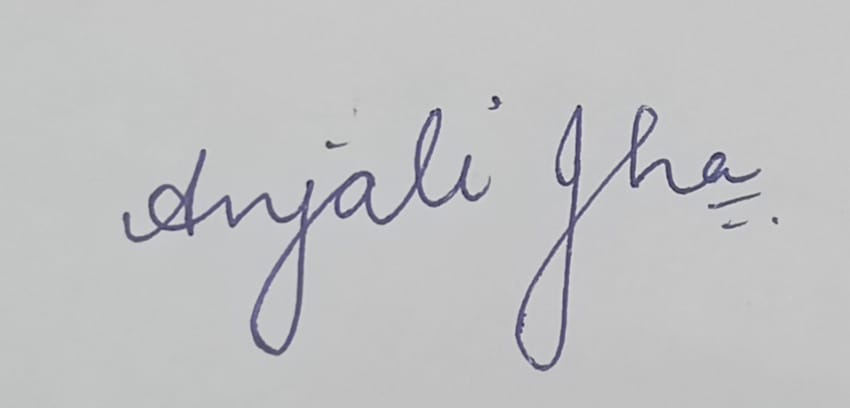 Anjali Jha